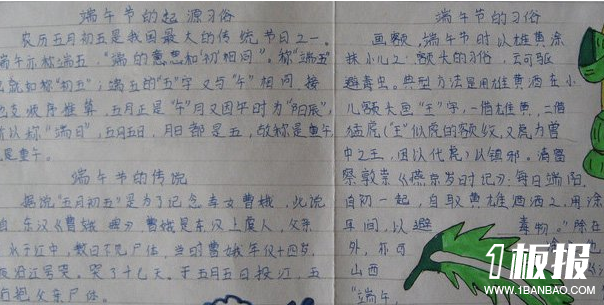 端午节的起源习俗
农历五月初五是我国最大的传统节日之一。
端午亦称端五，"端"的意思和"初"相同，称"端五"
也就如称"初五"，端五的"五"字又与"午"相同，按
地支顺序推算，五月正是"午"月又因午时为"阳辰"，
所以称"端日"，五月五日，月日都是五，故称是重午
是重午。
端午节的传统
据说"五月初五"是为了记念孝女曹娥，此说
自东汉《曹娥碑》曹娥是东汉上虞人，父亲
水于江中，数日不见尸体，当时曹娥年仅十四岁，
夜沿江号哭。哭了十七天，于五月五日投江，五
后抱父亲尸体。
端午节的习俗
画额，端午节时以雄黄涂
抹小儿额头的习俗，云可驱
避毒虫。典型方法是用雄黄酒在小
儿额头画"王"字，一借雄黄，一借
猛虎（"王"似虎的额纹，又虎为兽
中之王，因以代虎）以镇邪。清富
察敦崇《燕京岁时记》：每日端阳，
自初一起，自取雄黄酒洒之，用涂
耳间，以避毒物。"除在
外，亦可涂
山西
"端午
1板报
WWW.1BANBAO.COM